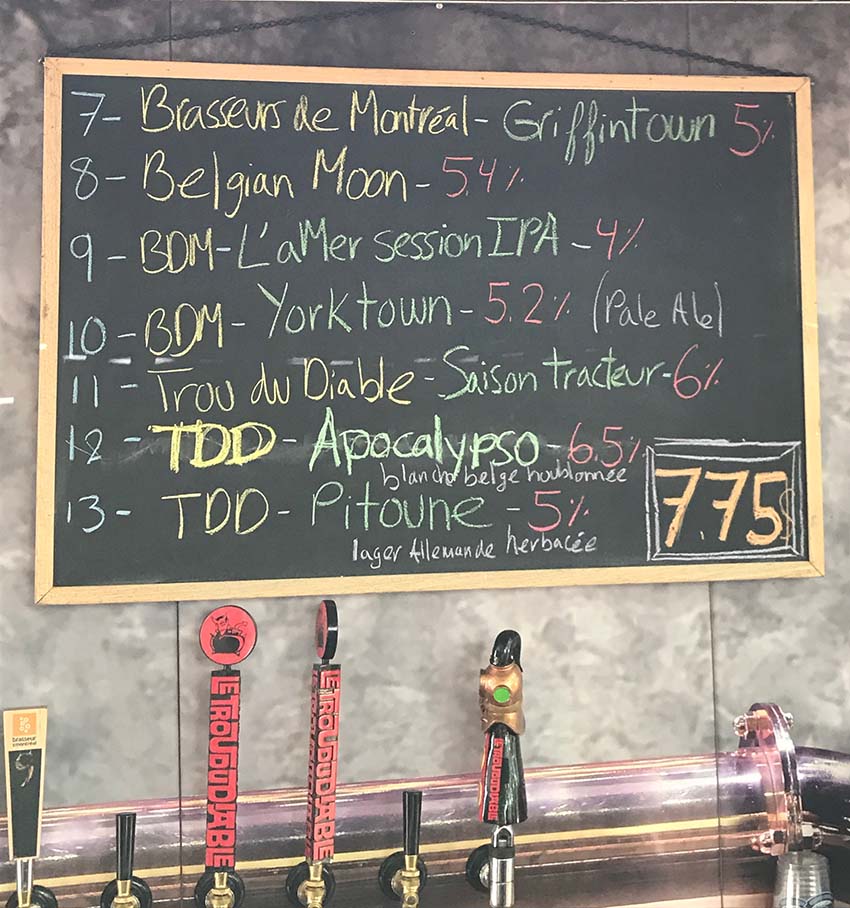 7- Brasseurs de Montréal - Griffintown 5%
8- Belgian Moon - 5.4%
9- BDM - L'aMer session IPA - 4%
10- BDM - Yorktown - 5.2% (Pale Ale)
11- Trou du Diable - Saison tracteur - 6%
12- TDD - Apocalypso - 6.5%
blanche belge houblonnée
13- TDD - Pitoune - 5%
lager Allemande herbacée
7.75$
LE TROU DU DIABLE
LE TROU DU DIABLE
LE TROU DU DIABLE
brasseur
9